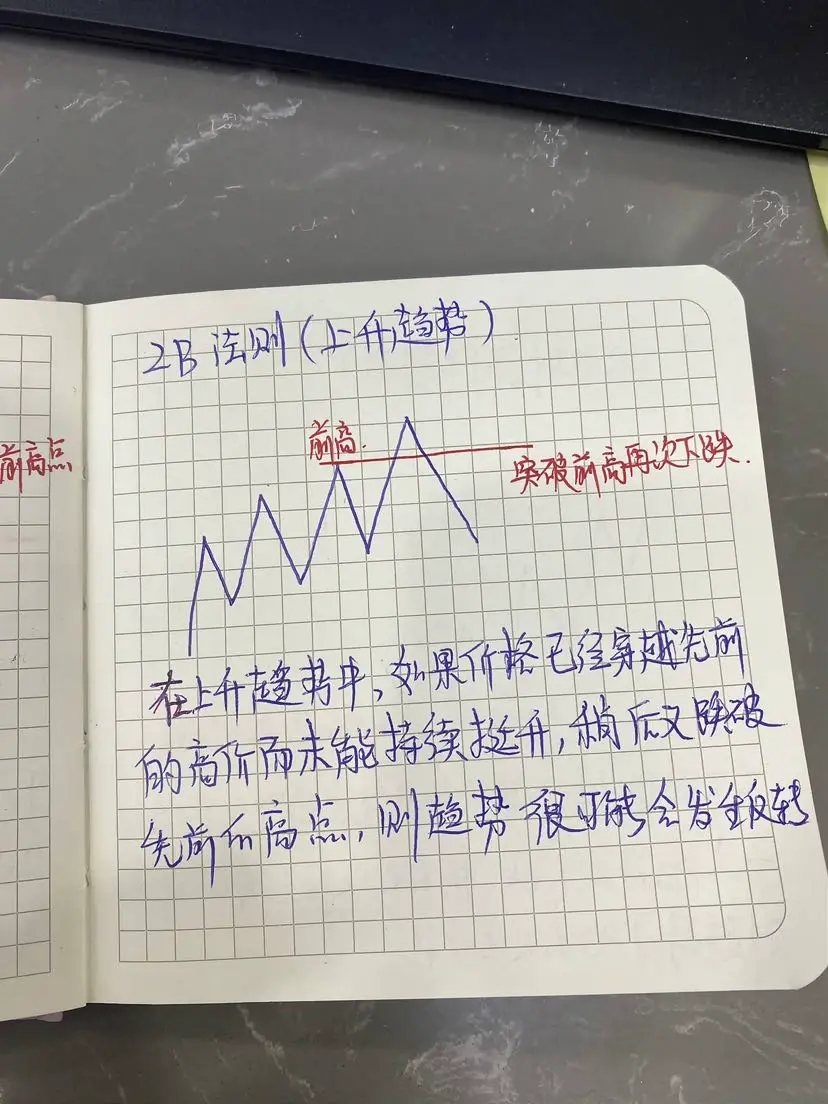 2B法则(上升趋势)
前高.
前高点
突破前高再次下跌.
在上升趋势中,如果价格已经穿越先前
的高价而未能持续挺升,稍后又跌破
先前的高点,则趋势很可能会发生反转